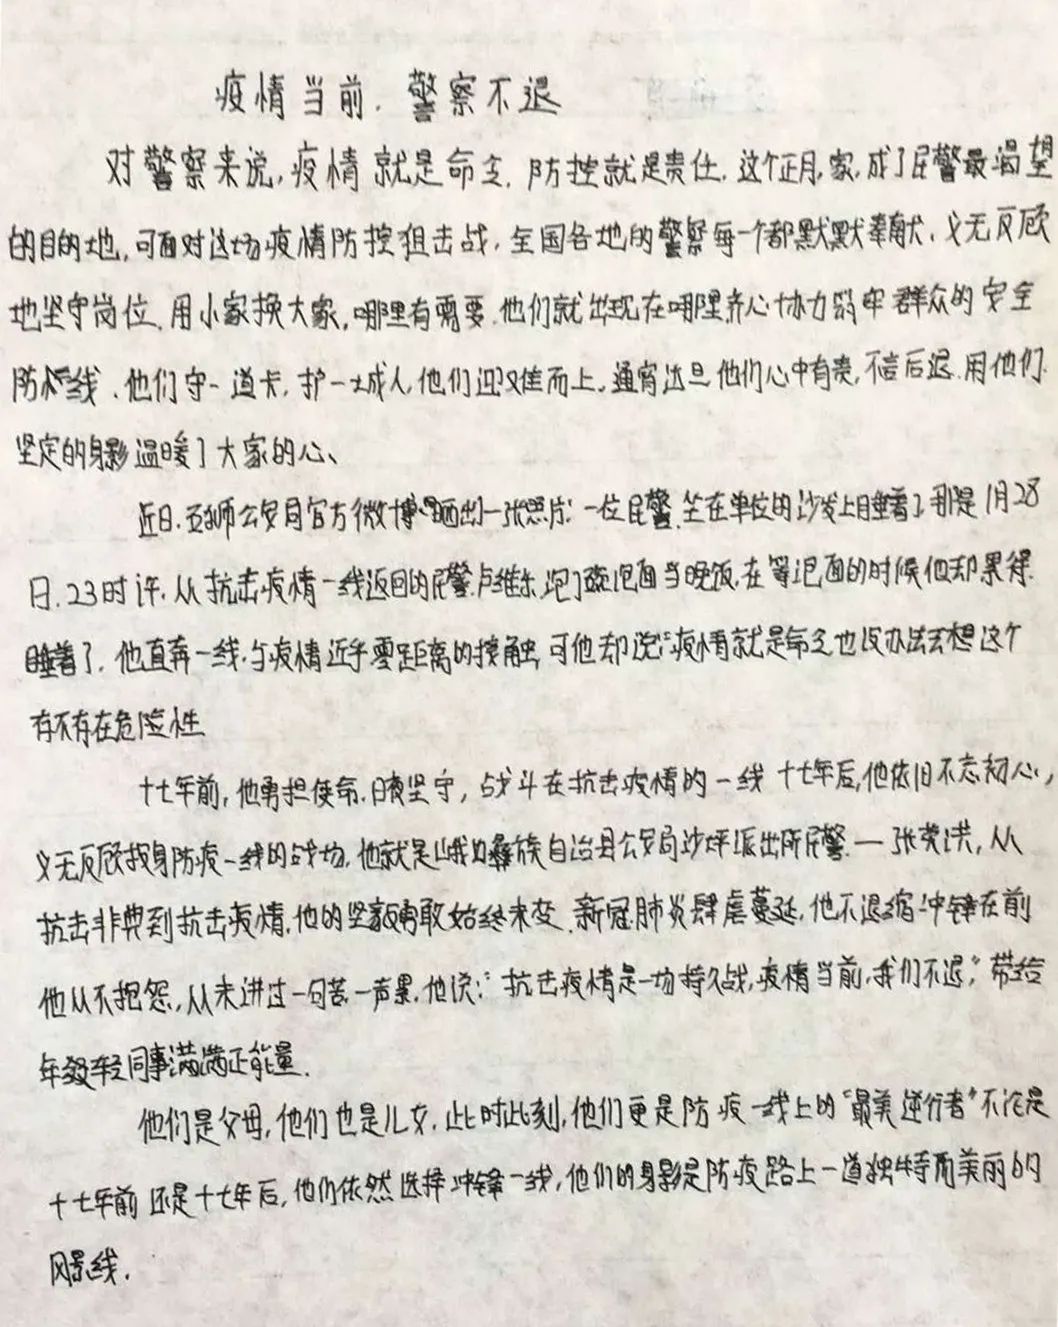 疫情当前.警察不退
对警察来说,疫情就是命令.防控就是责任.这个正月,家,成了民警最渴望
的目的地,可面对这场疫情防控狙击战.全国各地的警察每一个都默默奉献、义无反顾
地坚守岗位.用小家换大家,哪里有需要.他们就出现在哪里,齐心协力筑牢群众的安全
防线、他们守一道卡,护一城人,他们迎难而上.通宵达旦他们心中有责,不言后退.用他们
坚定的身影温暖了大家的心、
近日.五师公安局官方微博晒出一张照片:一位民警.坐在单位的沙发上睡着了.那是1月28
日.23时许.从抗击疫情一线返回的民警卢维东,泡了碗泡面当晚饭,在等泡面的时候他却累得
睡着了.他直奔一线.与疫情近乎零距离的接触,可他却说:“疫情就是命令也没办法去想这个
存不存在危险性
十七年前,他勇担使命.日夜坚守,战斗在抗击疫情的一线十七年后,他依旧不忘初心,
义无反顾投身防疫一线的战场.他就是峨边彝族自治县公安局沙坪派出所民警.一张荣洪,从
抗击非典到抗击疫情.他的坚毅勇敢始终未变.新冠肺炎肆虐蔓延,他不退缩冲锋在前
他从不抱怨,从未讲过一句苦一声累.他说:“抗击疫情是一场持久战,疫情当前.我们不退,”带给
年轻同事满满正能量.
他们是父母,他们也是儿女.此时此刻,他们更是防疫一线上的“最美逆行者”不论是
十七年前还是十七年后,他们依然选择冲锋一线,他们的身影是防疫路上一道独特而美丽的
风景线.